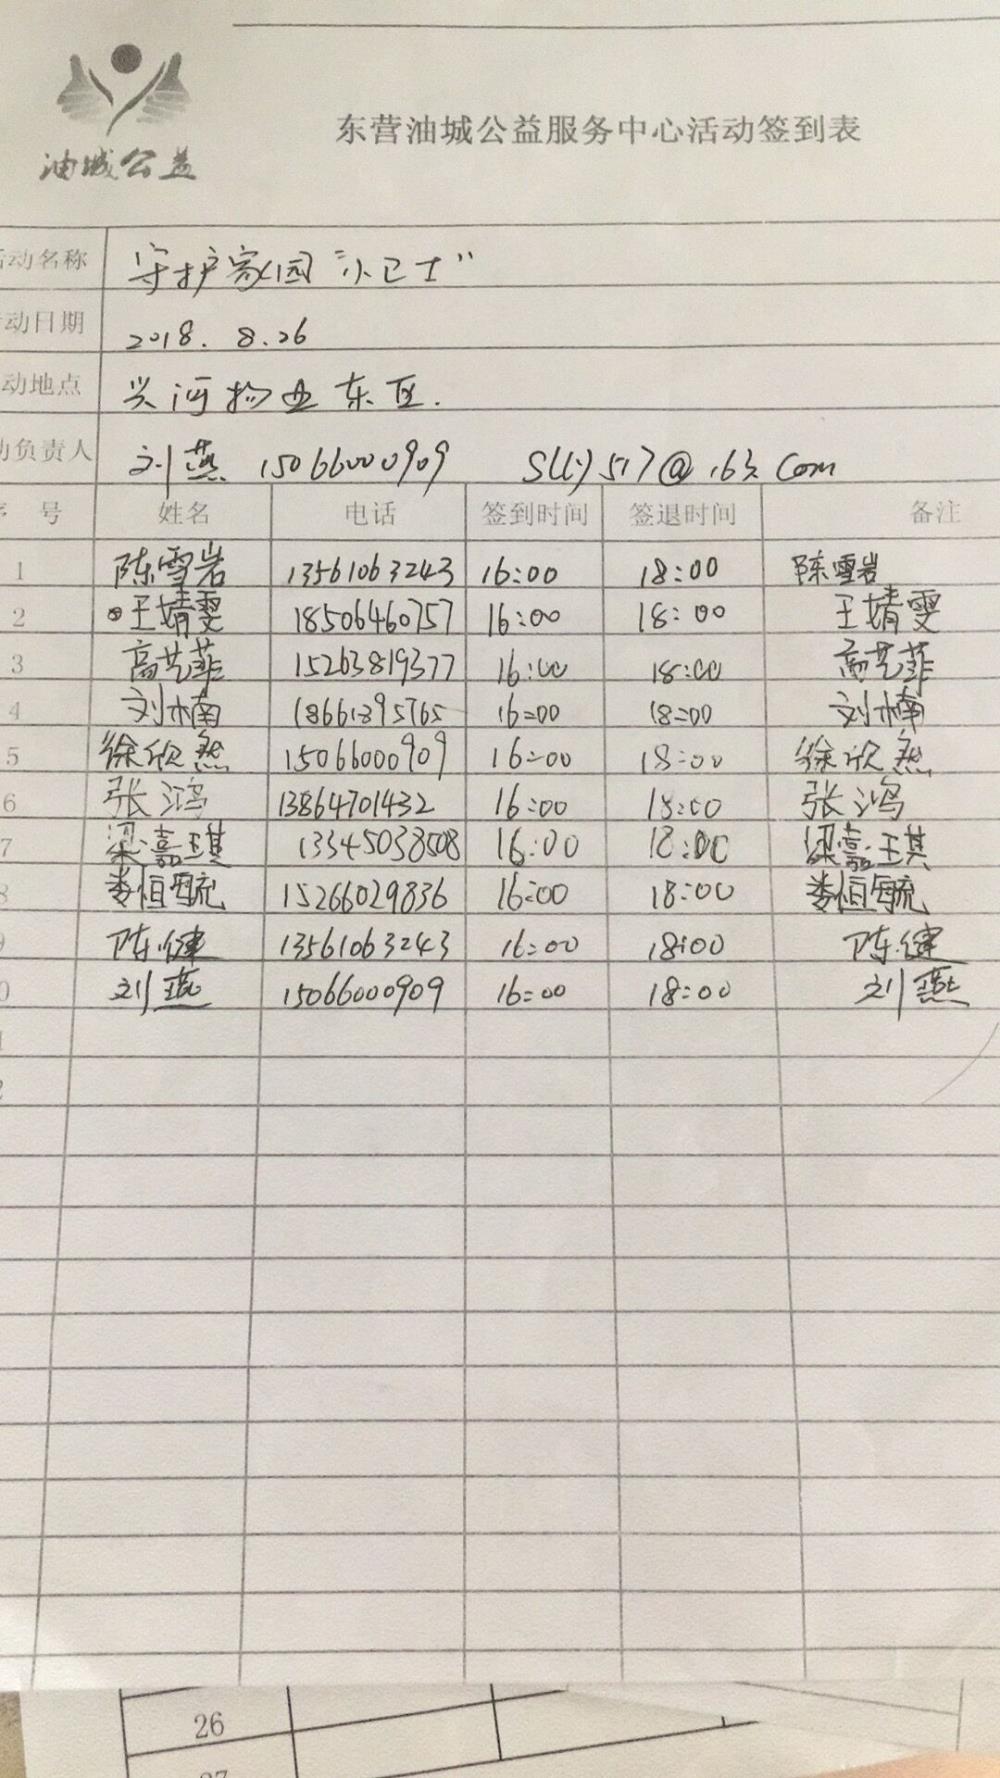 油城公益
东营油城公益服务中心活动签到表
活动名称 守护家园“小卫士”
动日期 2018. 8.26
动地点 兴河物业东区.
负责人 刘燕 15066000909 @163.com
序 号 姓名 电话 签到时间 签退时间 备注
1 陈雪岩 13561063243 16:00 18:00 陈雪岩
2 王婧雯 18506460757 16:00 18:00 王婧雯
3 高艺菲 15263819377 16:00 18:00 高艺菲
4 刘楠 18661395765 16:00 18:00 刘楠
5 徐欣然 15066000909 16:00 18:00 徐欣然
6 张鸿 13864701432 16:00 18:00 张鸿
7 梁嘉琪 13345038508 16:00 18:00 梁嘉琪
8 娄恒毓 15266029836 16:00 18:00 娄恒毓
9 陈健 13561063243 16:00 18:00 陈健
0 刘燕 15066000909 16:00 18:00 刘燕
1
2
26
27